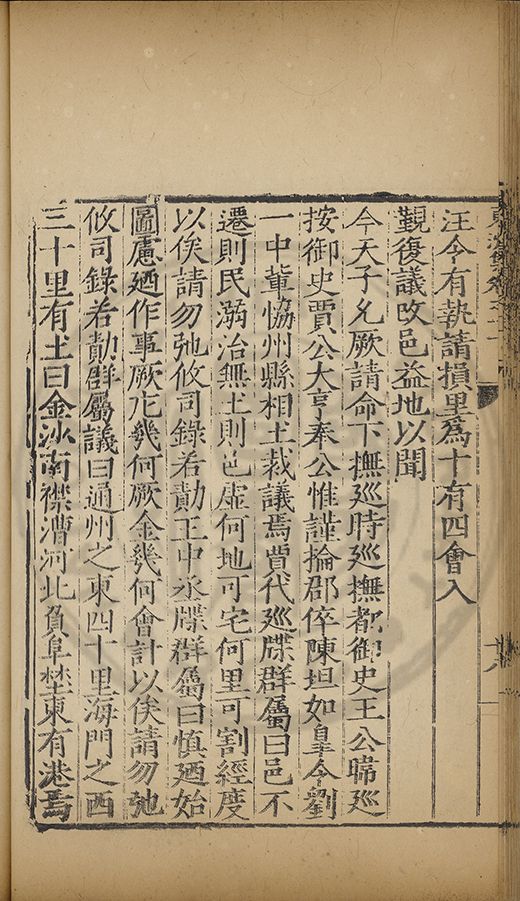 十八
汪令有執請損里爲十有四會入
覲復議攺邑益地以聞
今天子允厥請命下撫廵時廵撫都御史王公暐廵
按御史賈公大亨奉公惟謹掄郡倅陳坦如臯令劉
一中董恊州縣相土裁議焉賈代廵牒群屬曰邑不
遷則民溺治無土則邑虛何地可宅何里可割經度
以俟請勿弛攸司錄若勣王中丞牒群屬曰慎廼始
圖慮廼作事厥庀幾何厥金幾何會計以俟請勿弛
攸司錄若勣群屬議曰通州之東四十里海門之西
三十里有土曰金沙南襟漕河北負阜埜東有港焉